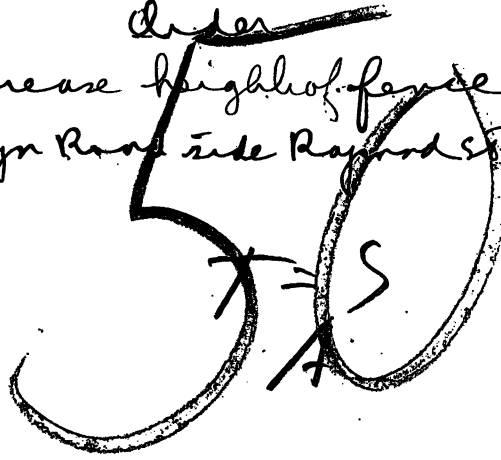 Order
rease height of fence
yn Road side Raymond S
50